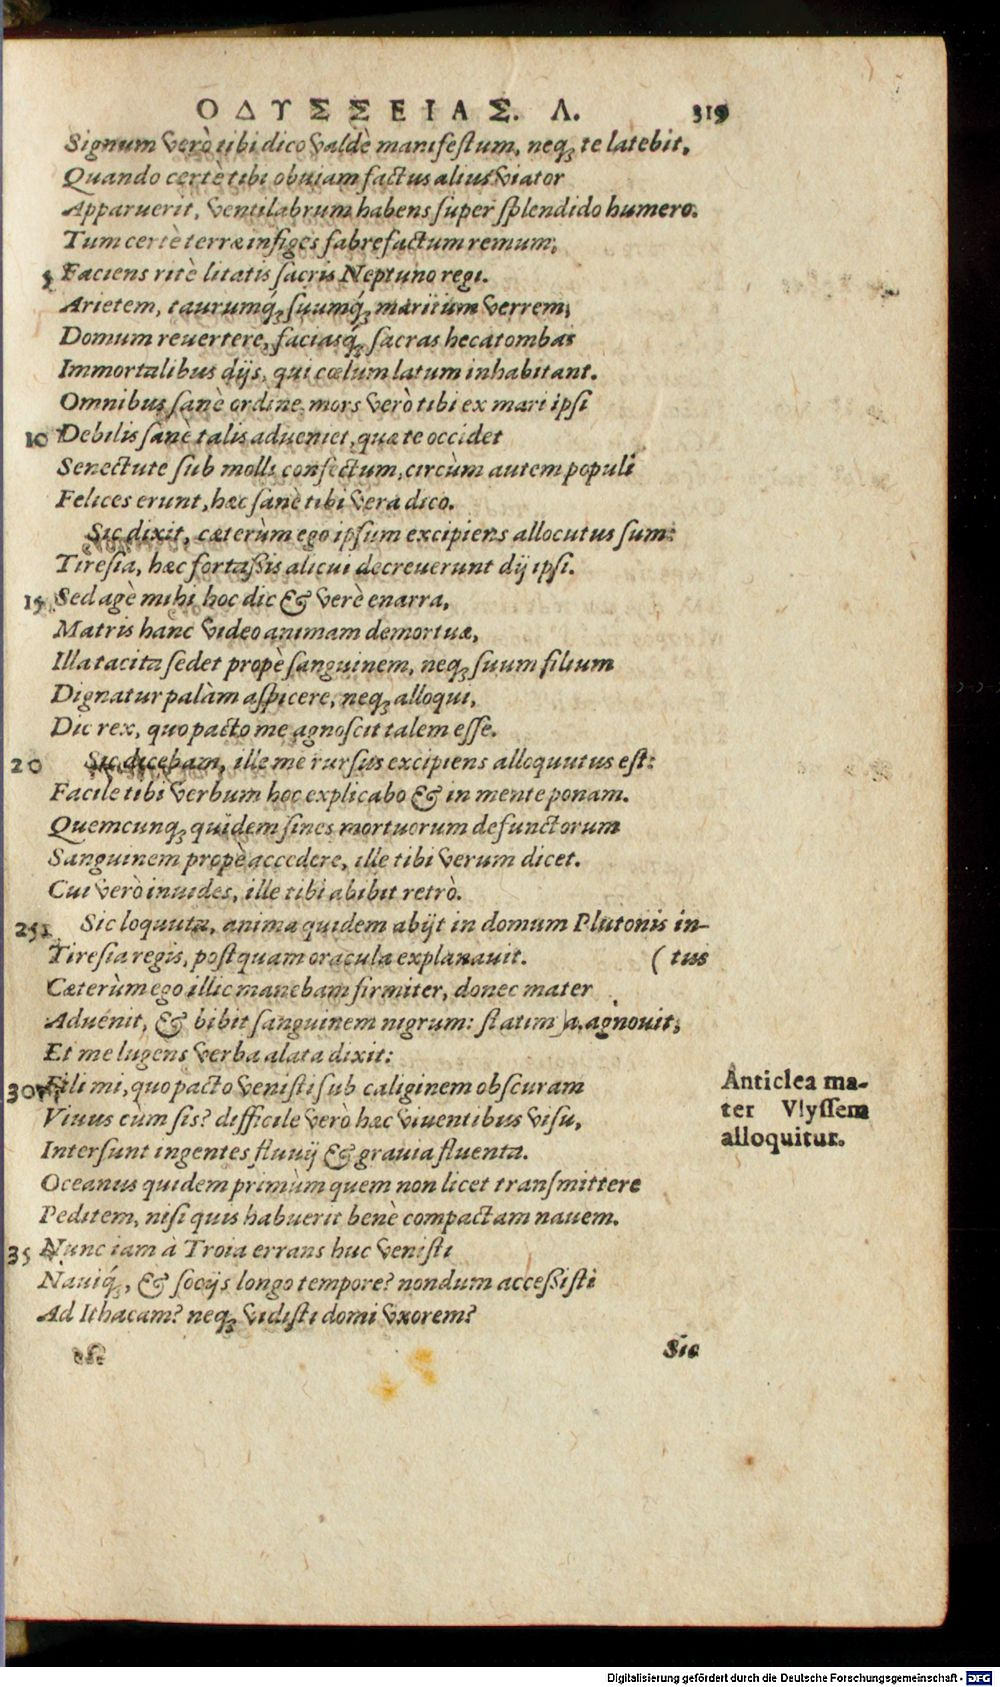 ΟΔΥΣΣΕΙΑΣ. Λ. 319
Signum verò tibi dico valdè manifestum, neq; te latebit,
Quando certè tibi obuiam factus alius viator
Apparuerit, ventilabrum habens super splendido humero.
Tum certè terræ infiges fabrefactum remum,
5 Faciens ritè litatis sacris Neptuno regi.
Arietem, taurumq́;, suumq́; maritum verrem,
Domum reuertere, faciasq́; sacras hecatombas
Immortalibus dijs, qui cœlum latum inhabitant.
Omnibus sanè ordine. mors verò tibi ex mari ipsi
10 Debilis sanè talis adueniet, quæ te occidet
Senectute sub molli confectum, circùm autem populi
Felices erunt, hæc sanè tibi vera dico.
Sic dixit, cæterùm ego ipsum excipiens allocutus sum:
Tiresia, hæc fortaßis alicui decreuerunt dij ipsi.
15 Sed agè mihi hoc dic & verè enarra,
Matris hanc video animam demortuæ,
Illa tacita sedet propè sanguinem, neq; suum filium
Dignatur palàm aspicere, neq; alloqui,
Dic rex, quo pacto me agnoscit talem esse.
20 Sic dicebam, ille me rursus excipiens alloquutus est:
Facilè tibi verbum hoc explicabo & in mente ponam.
Quemcunq; quidem sines mortuorum defunctorum
Sanguinem propè accedere, ille tibi verum dicet.
Cui verò inuides, ille tibi abibit retrò.
25 Sic loquuta, anima quidem abijt in domum Plutonis in-
Tiresia regis, postquam oracula explanauit. (tus
Cæterùm ego illic manebam firmiter, donec mater
Aduenit, & bibit sanguinem nigrum: statim a. agnouit,
Et me lugens verba alata dixit:
30 Fili mi, quo pacto venisti sub caliginem obscuram
Viuus cùm sis? difficile verò hæc viuentibus visu,
Intersunt ingentes fluuij & grauia fluenta.
Oceanus quidem primùm quem non licet transmittere
Peditem, nisi quis habuerit benè compactam nauem.
35 Nunc iam à Troia errans huc venisti
Nauiq́;, & socijs longo tempore? nondum accessisti
Ad Ithacam? neq; vidisti domi vxorem?
Sic
Anticlea ma-
ter Vlyssem
alloquitur.
Digitalisierung gefördert durch die Deutsche Forschungsgemeinschaft - DFG